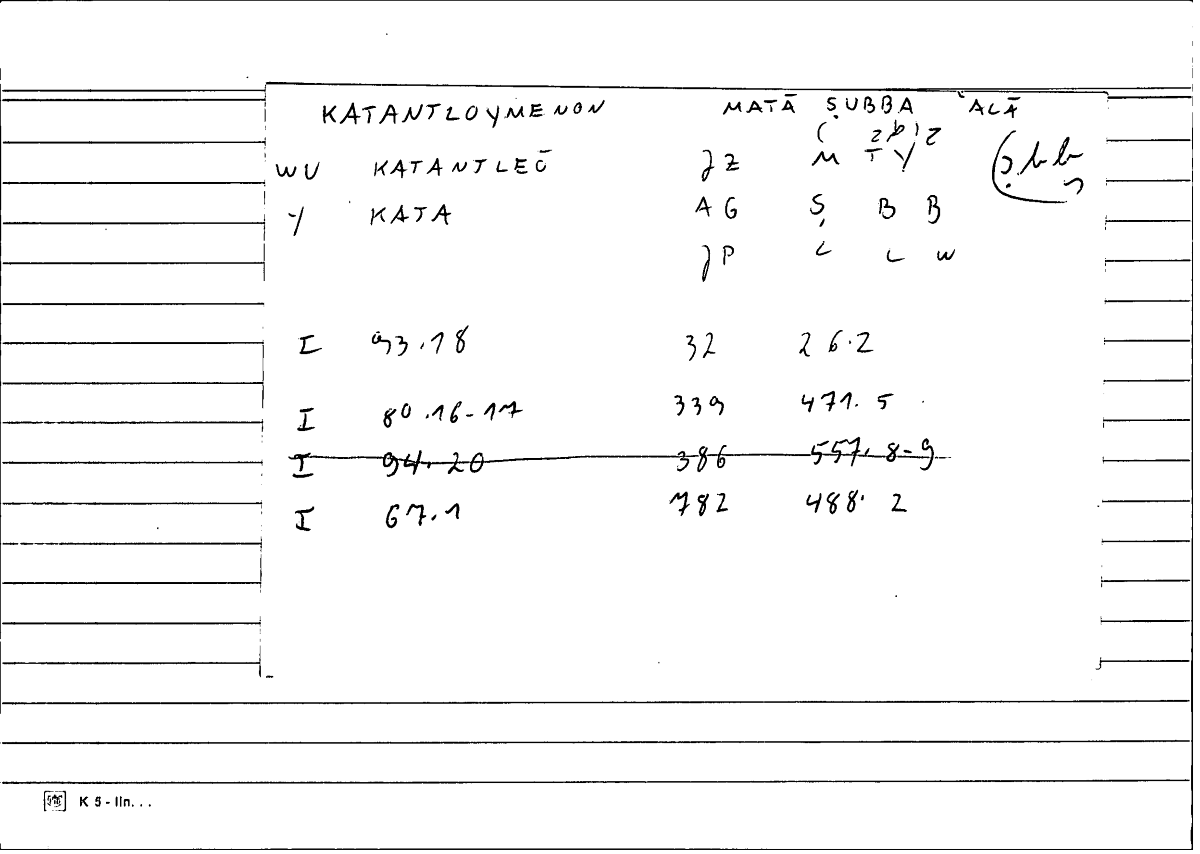 KATANTLOYMENON MATĀ ṢUBBA ʿALĀ
WU KATANTLEŌ JZ M T Y
Y KATA AG Ṣ B B
JP L L W
I 93.18 32 26.2
I 80.16-17 339 471.5
I 94.20 386 557.8-9
I 67.1 782 488.2
K 5 - lin...